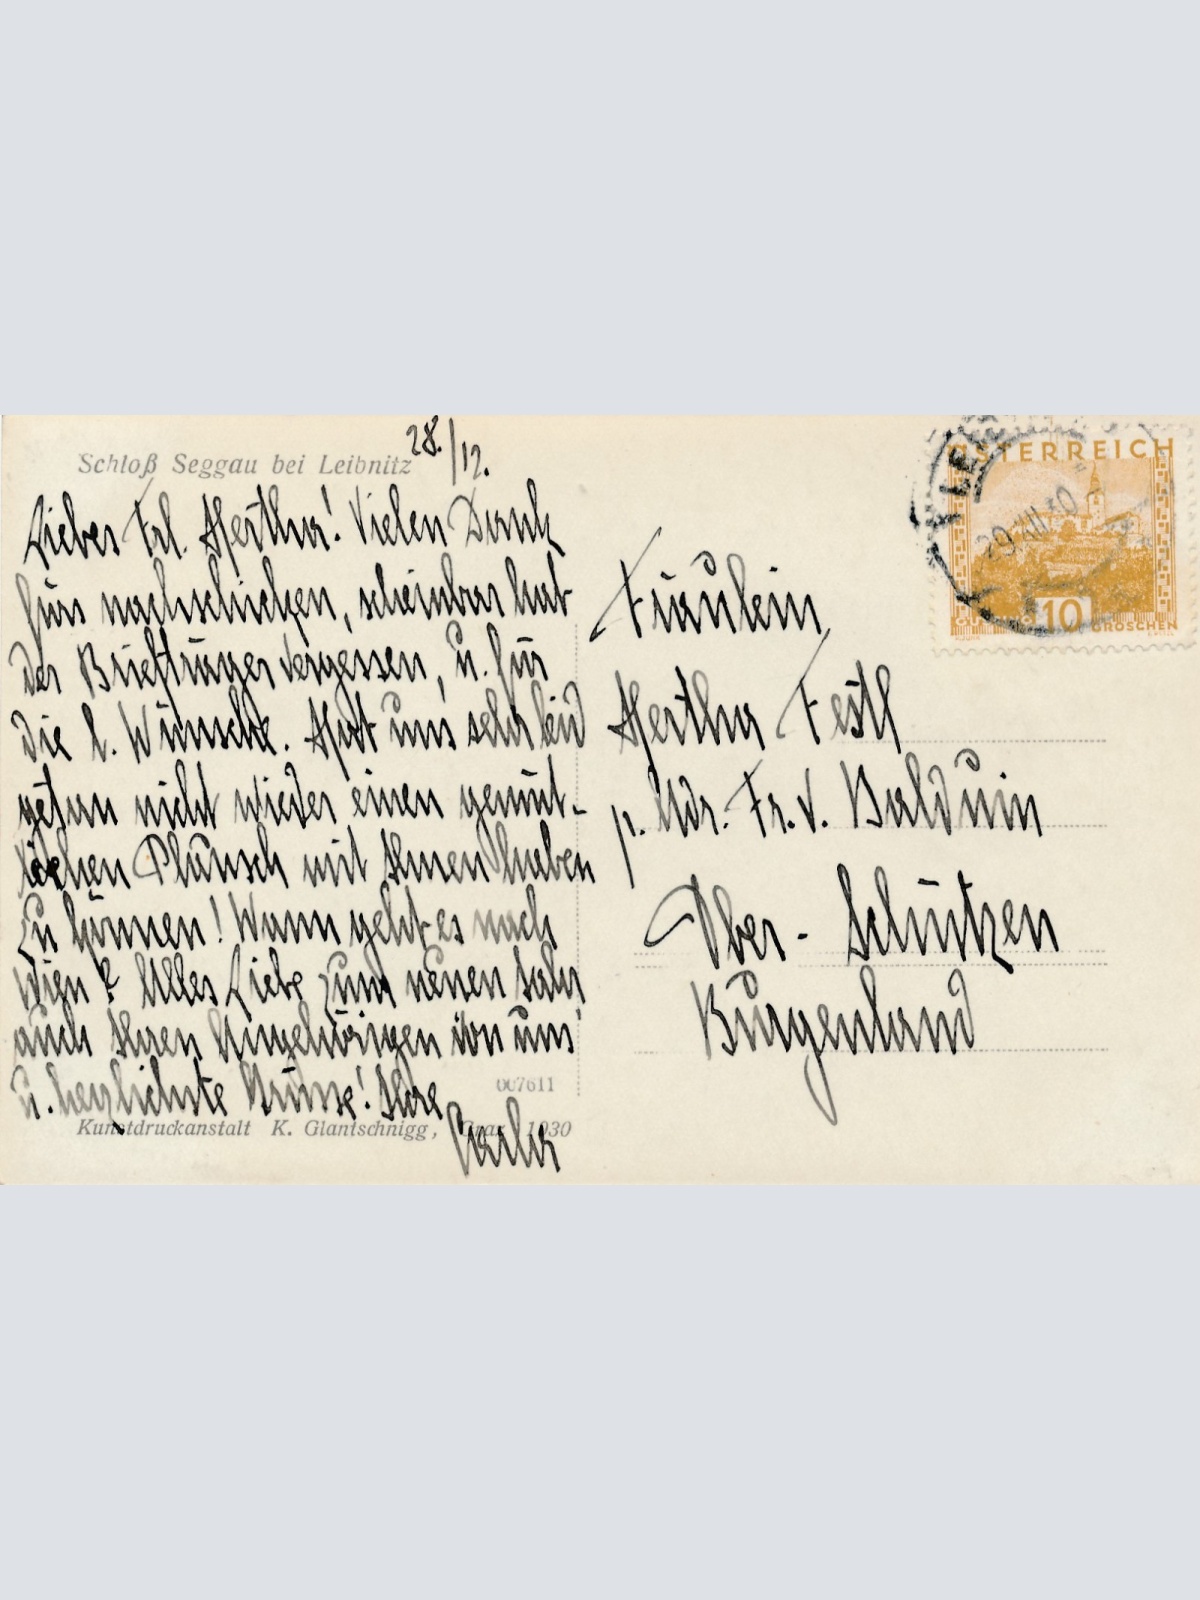 Schloß Seggau bei Leibnitz
28./12.
Liebes Frl. Hertha! Vielen Dank
fürs nachschicken, scheinbar hat
der Briefträger vergessen, u. für
die l. Wünsche. Hat uns sehr leid
getan nicht wieder einen gemüt-
lichen Plausch mit Ihnen haben
zu können! Wann geht es nach
Wien? Alles Liebe zum neuen Jahr
auch Ihren Angehörigen von uns
u. herzlichste Grüsse! Ihre
Carla
007611
Kunstdruckanstalt K. Glantschnigg, Graz 1930
ÖSTERREICH
10
GROSCHEN
Fräulein
Hertha Festl
p. Adr. Fr. v. Balduin
Ober-Schützen
Burgenland